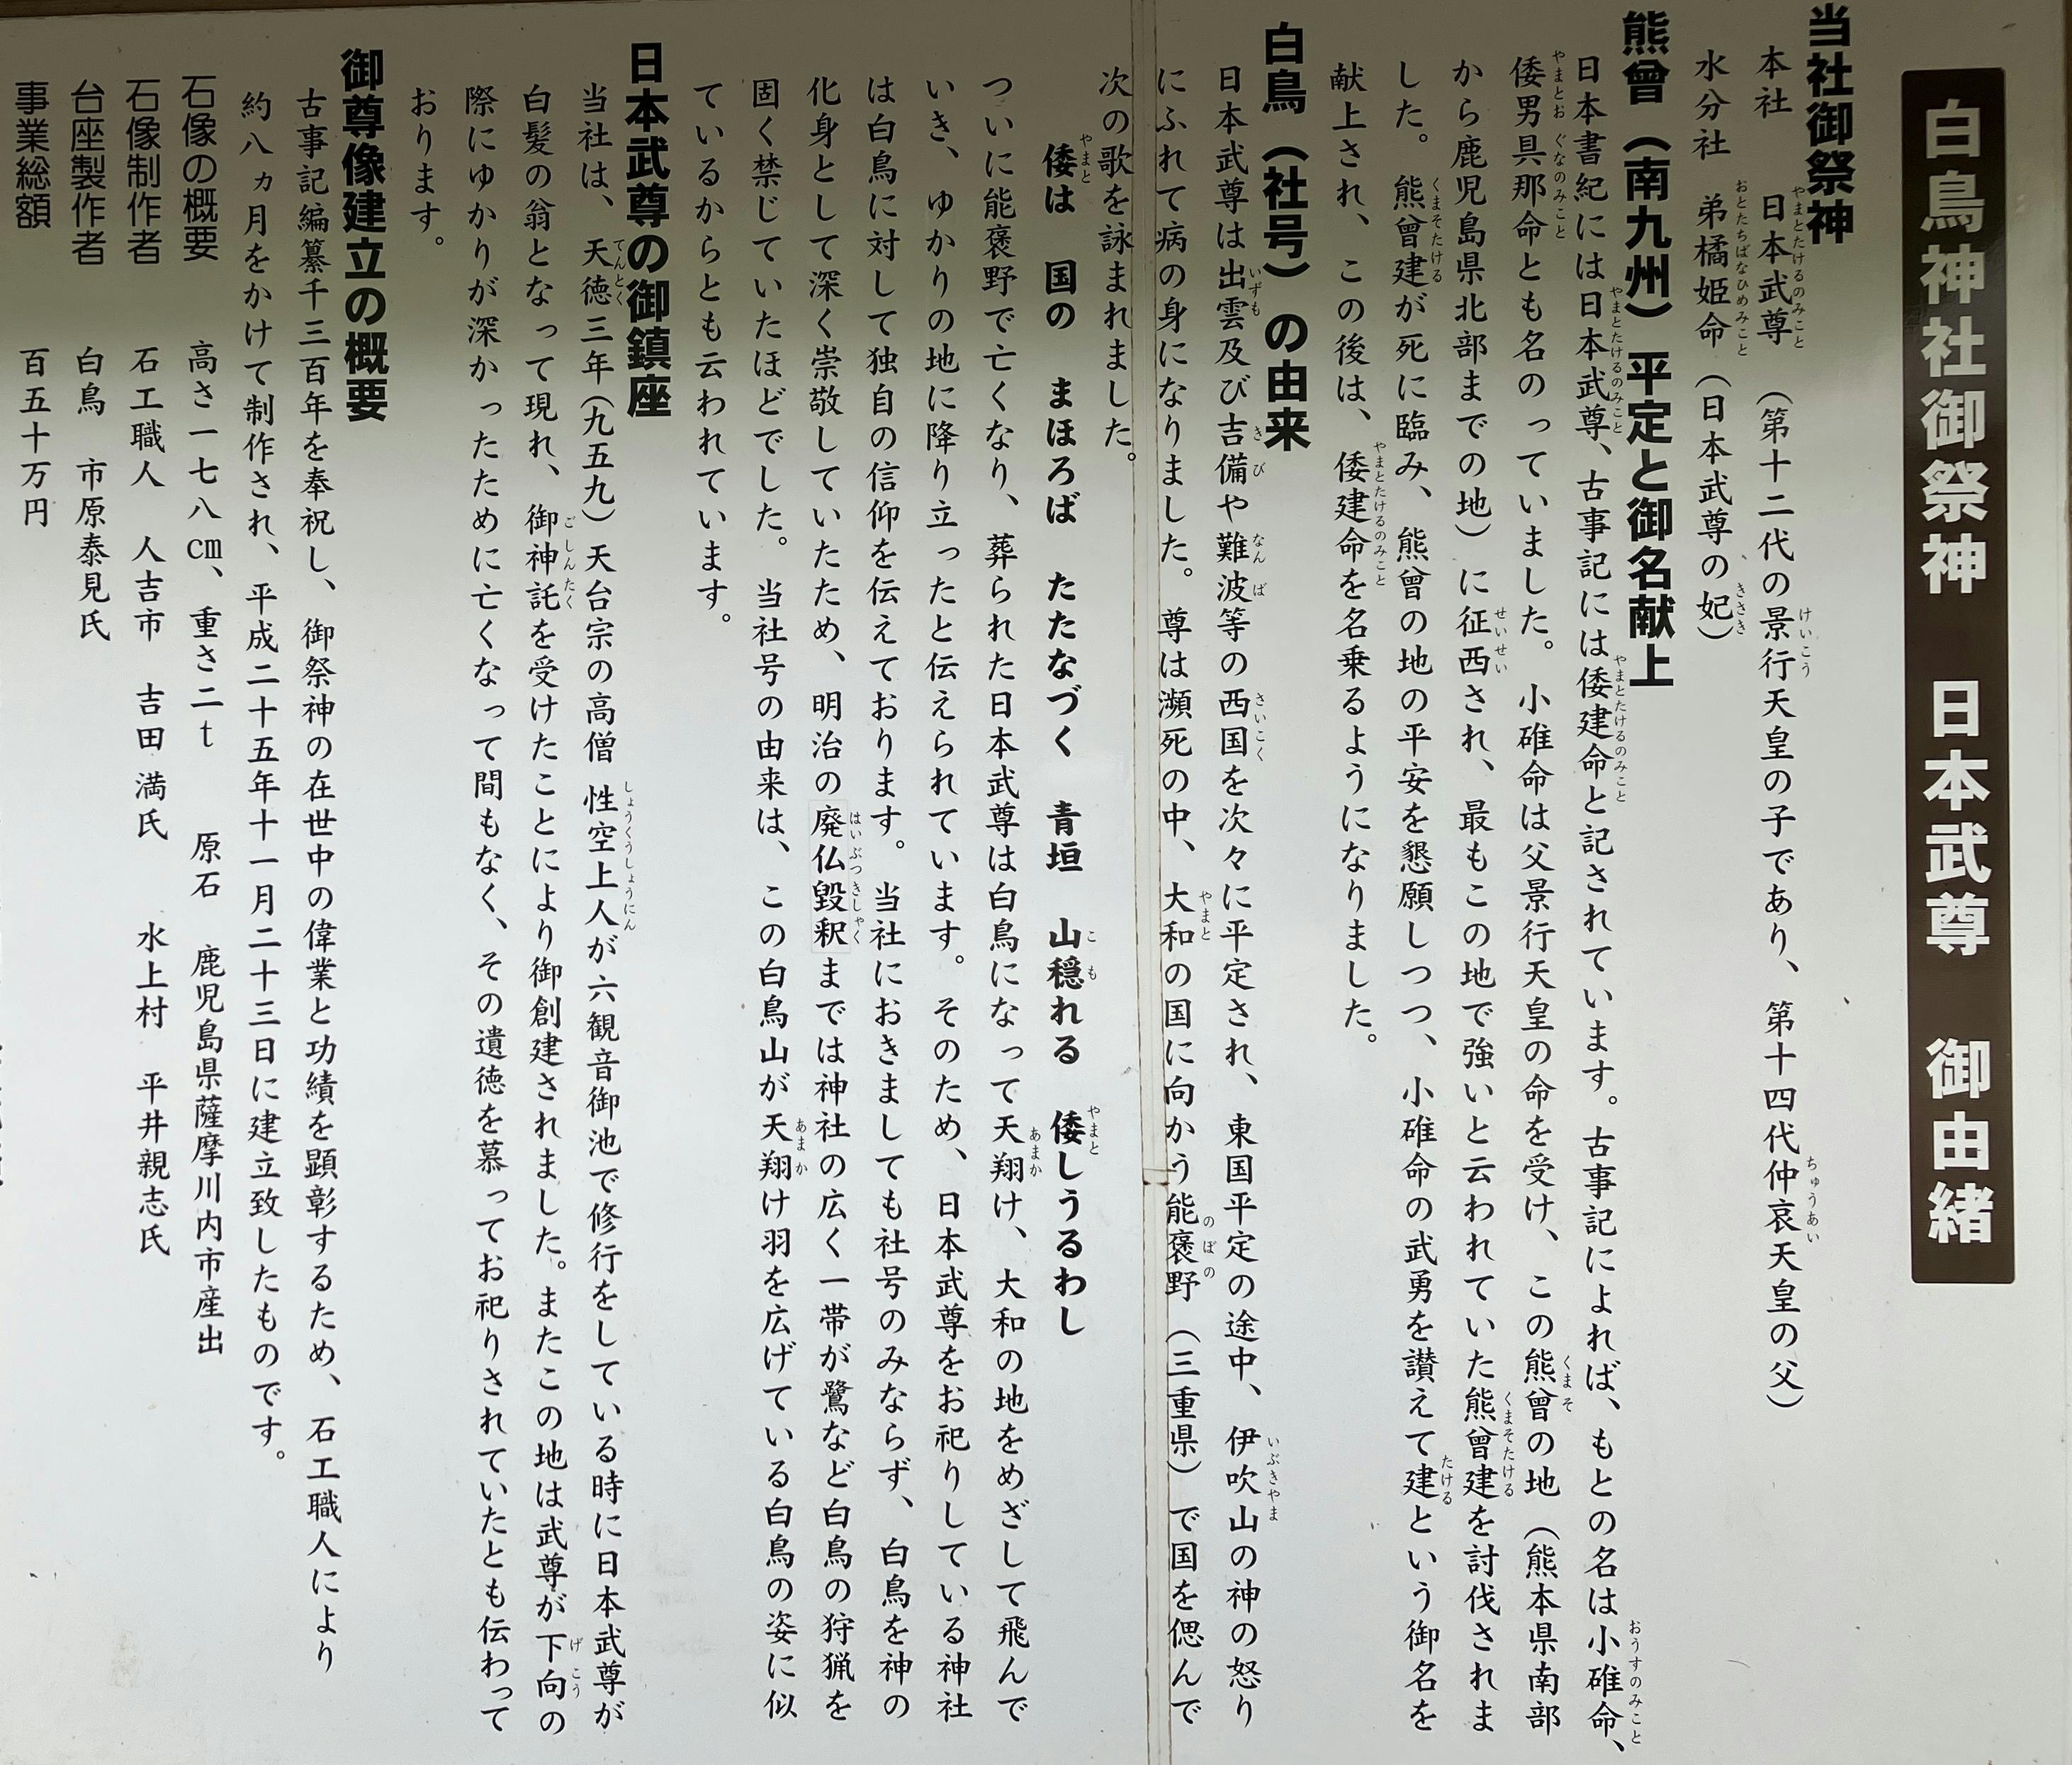 白鳥神社御祭神　日本武尊　御由緒
当社御祭神
本社　日本武尊　（第十二代の景行天皇の子であり、第十四代仲哀天皇の父）
水分社　弟橘姫命（日本武尊の妃）
熊曾（南九州）平定と御名献上
日本書紀には日本武尊、古事記には倭建命と記されています。古事記によれば、もとの名は小碓命、
倭男具那命とも名のっていました。小碓命は父景行天皇の命を受け、この熊曾の地（熊本県南部
から鹿児島県北部までの地）に征西され、最もこの地で強いと云われていた熊曾建を討伐されま
した。熊曾建が死に臨み、熊曾の地の平安を懇願しつつ、小碓命の武勇を讃えて建という御名を
献上され、この後は、倭建命を名乗るようになりました。
白鳥（社号）の由来
日本武尊は出雲及び吉備や難波等の西国を次々に平定され、東国平定の途中、伊吹山の神の怒り
にふれて病の身になりました。尊は瀕死の中、大和の国に向かう能褒野（三重県）で国を偲んで
次の歌を詠まれました。
倭は　国の　まほろば　たたなづく　青垣　山穏れる　倭しうるわし
ついに能褒野で亡くなり、葬られた日本武尊は白鳥になって天翔け、大和の地をめざして飛んで
いき、ゆかりの地に降り立ったと伝えられています。そのため、日本武尊をお祀りしている神社
は白鳥に対して独自の信仰を伝えております。当社におきましても社号のみならず、白鳥を神の
化身として深く崇敬していたため、明治の廃仏毀釈までは神社の広く一帯が鷺など白鳥の狩猟を
固く禁じていたほどでした。当社号の由来は、この白鳥山が天翔け羽を広げている白鳥の姿に似
ているからとも云われています。
日本武尊の御鎮座
当社は、天徳三年（九五九）天台宗の高僧　性空上人が六観音御池で修行をしている時に日本武尊が
白髪の翁となって現れ、御神託を受けたことにより御創建されました。またこの地は武尊が下向の
際にゆかりが深かったために亡くなって間もなく、その遺徳を慕ってお祀りされていたとも伝わって
おります。
御尊像建立の概要
古事記編纂千三百年を奉祝し、御祭神の在世中の偉業と功績を顕彰するため、石工職人により
約八ヵ月をかけて制作され、平成二十五年十一月二十三日に建立致したものです。
石像の概要　高さ一七八㎝、重さ二ｔ　原石　鹿児島県薩摩川内市産出
石像制作者　石工職人　人吉市　吉田　満氏　水上村　平井親志氏
台座製作者　白鳥　市原泰見氏
事業総額　百五十万円